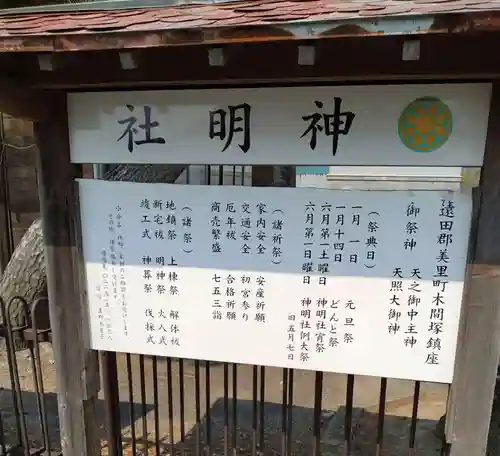 神明社
遠田郡美里町木間塚鎮座
御祭神　天之御中主神
天照大御神
（祭典日）
一月一日　元旦祭
一月十四日　どんと祭
六月第一土曜日　神明社宵祭
六月第一日曜日　神明社例大祭
旧五月七日
（諸祈祭）
家内安全　安産祈願
交通安全　初宮参り
厄年祓　合格祈願
商売繁盛　七五三詣
（諸祭）
地鎮祭　上棟祭　解体祓
新宅祓　明神祭　火入式
竣工式　神葬祭　伐採式